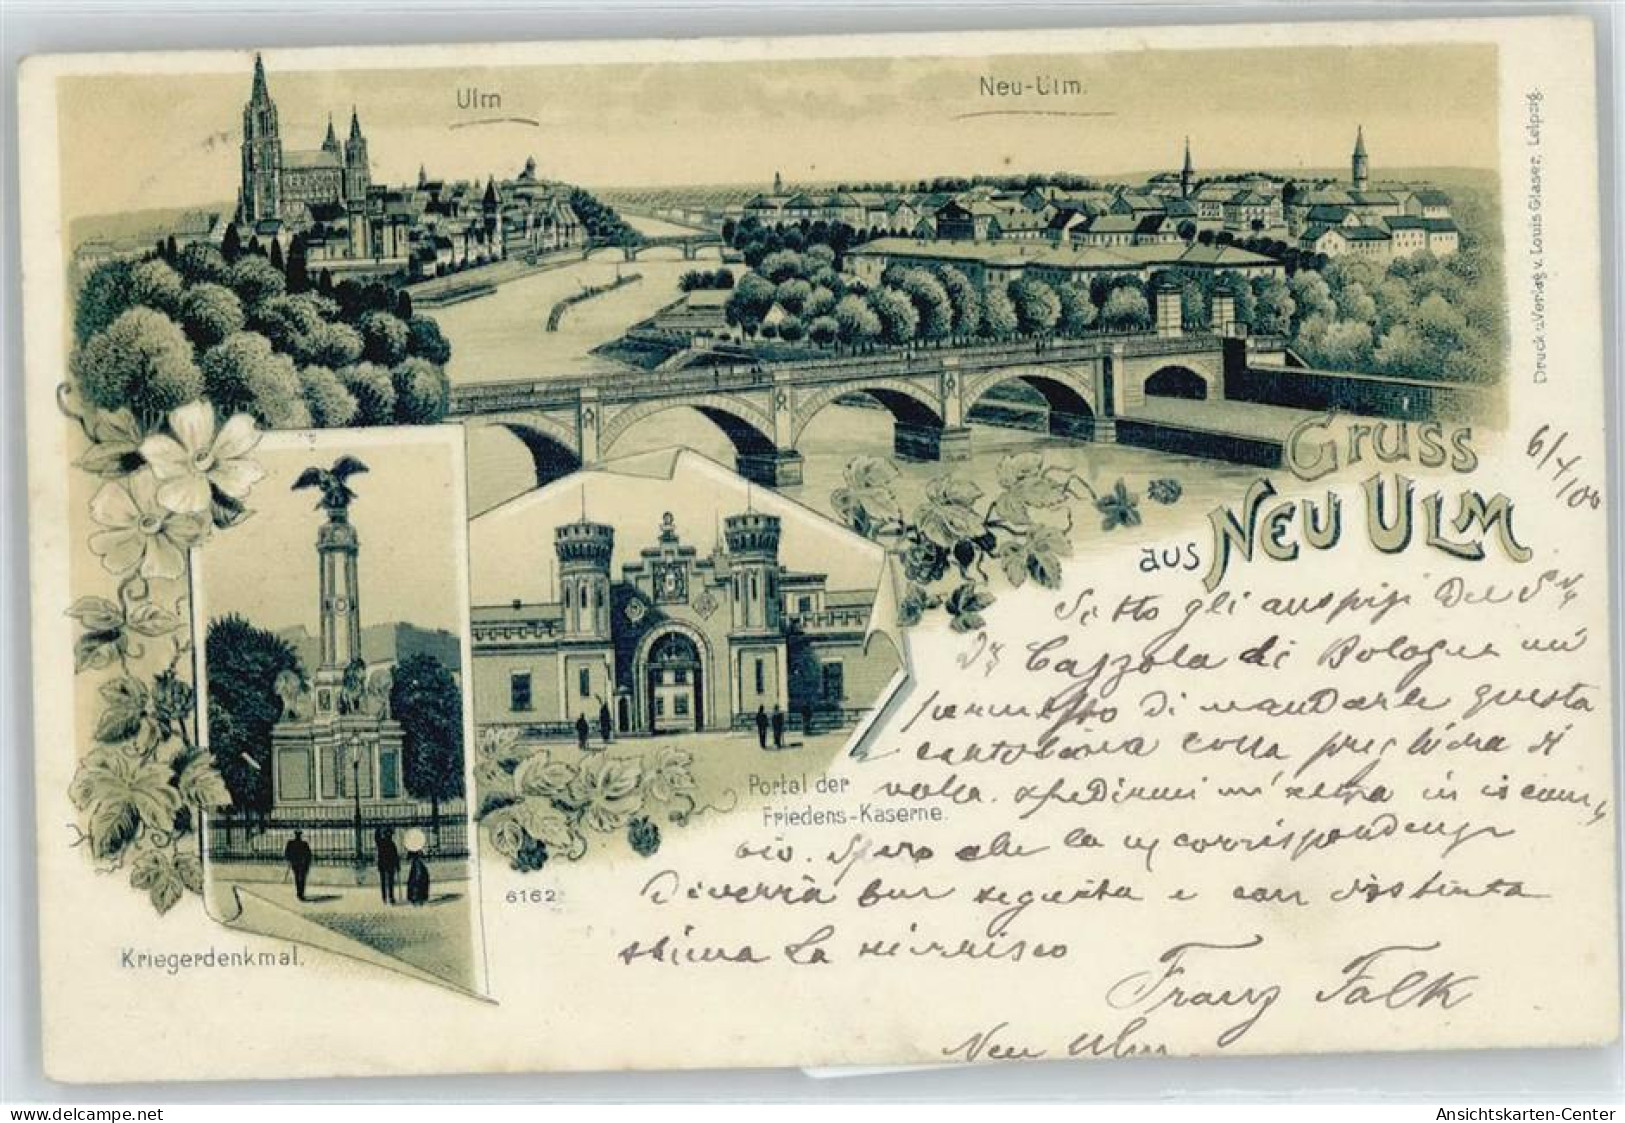 Ulm
Neu-Ulm.
Druck u. Verlag v. Louis Glaser, Leipzig.
Gruss
aus NEU ULM
6/4/00
Sotto gli auspizi del
Cazzola di Bologna mi
permetto di mandarle questa
cartolina colla preghiera di
volermi in iscam-
bio. Spero che la corrispondenza
diverrà ben seguita e con distinta
stima La riverisco
Franz Falk
Neu Ulm.
Portal der
Friedens-Kaserne.
6162
Kriegerdenkmal.
delcampe.net
Ansichtskarten-Center